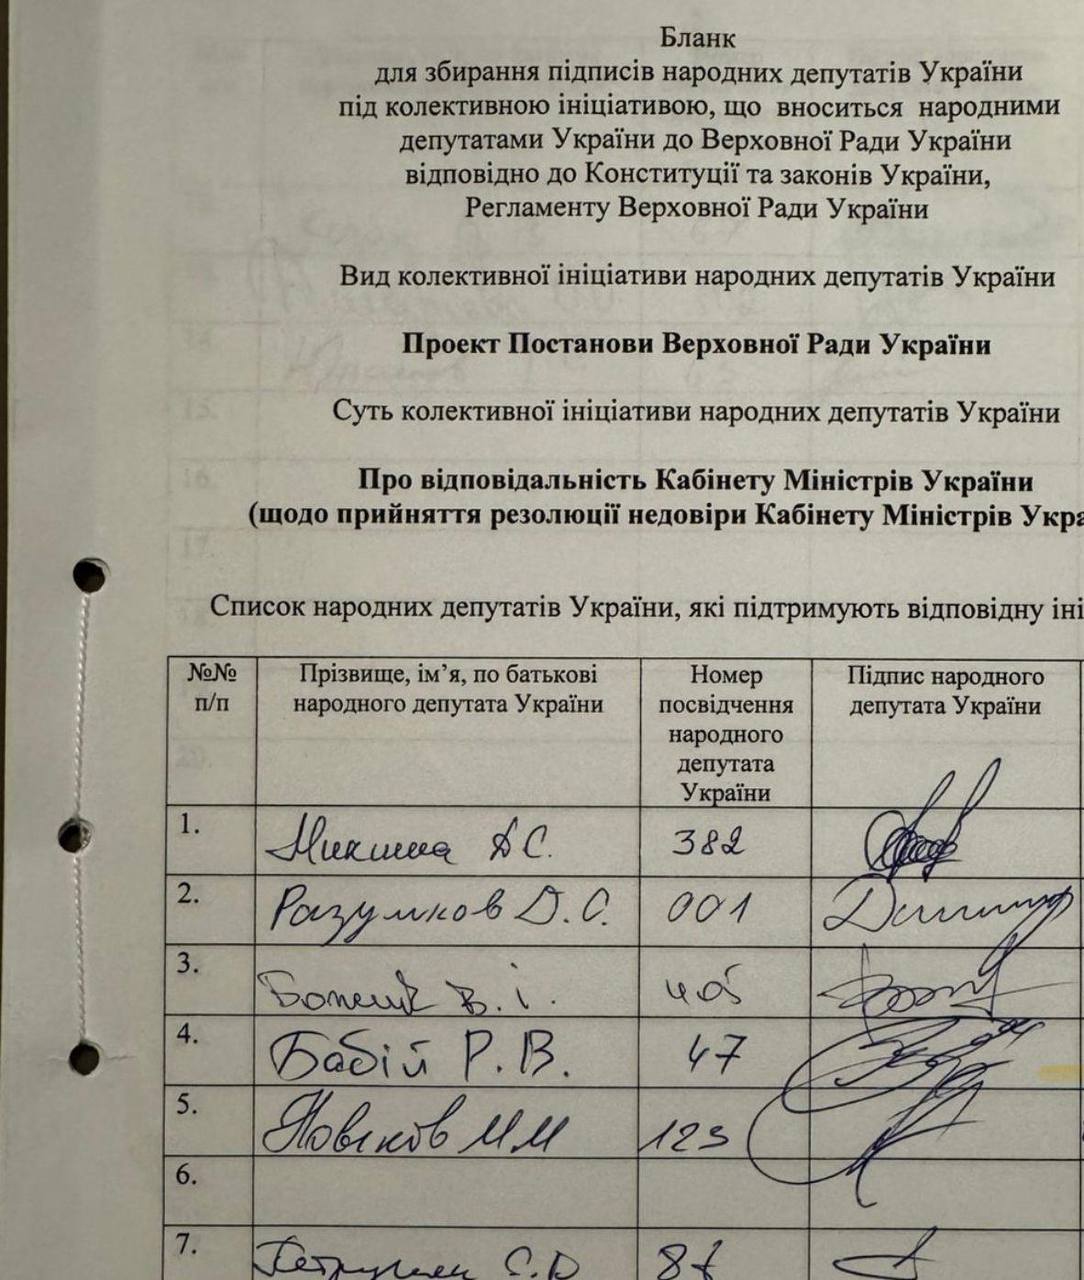 Бланк
для збирання підписів народних депутатів України
під колективною ініціативою, що вноситься народними
депутатами України до Верховної Ради України
відповідно до Конституції та законів України,
Регламенту Верховної Ради України
Вид колективної ініціативи народних депутатів України
Проект Постанови Верховної Ради України
Суть колективної ініціативи народних депутатів України
Про відповідальність Кабінету Міністрів України
(щодо прийняття резолюції недовіри Кабінету Міністрів Укра
Список народних депутатів України, які підтримують відповідну іні
№№ п/п
Прізвище, ім’я, по батькові народного депутата України
Номер посвідчення народного депутата України
Підпис народного депутата України
1. Микиша Д.С. 382
2. Разумков Д.О. 001
3. В.І. 405
4. Бабій Р.В. 47
5. М М 123
6.
7. С.Д 87